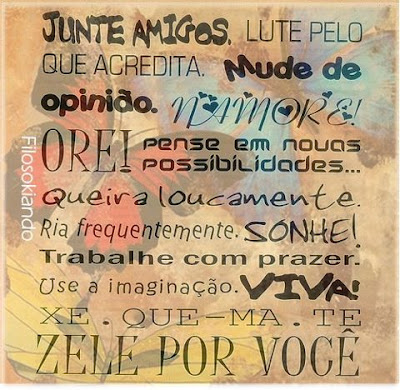 JUNTE AMIGOS. LUTE PELO
QUE ACREDITA. Mude de
opinião. NAMORE!
OREI pense em novas
possibilidades...
Queira loucamente.
Ria frequentemente. SONHE!
Trabalhe com prazer.
Use a imaginação. VIVA!
XE.QUE-MA.TE
ZELE POR VOCÊ
Filosokiando